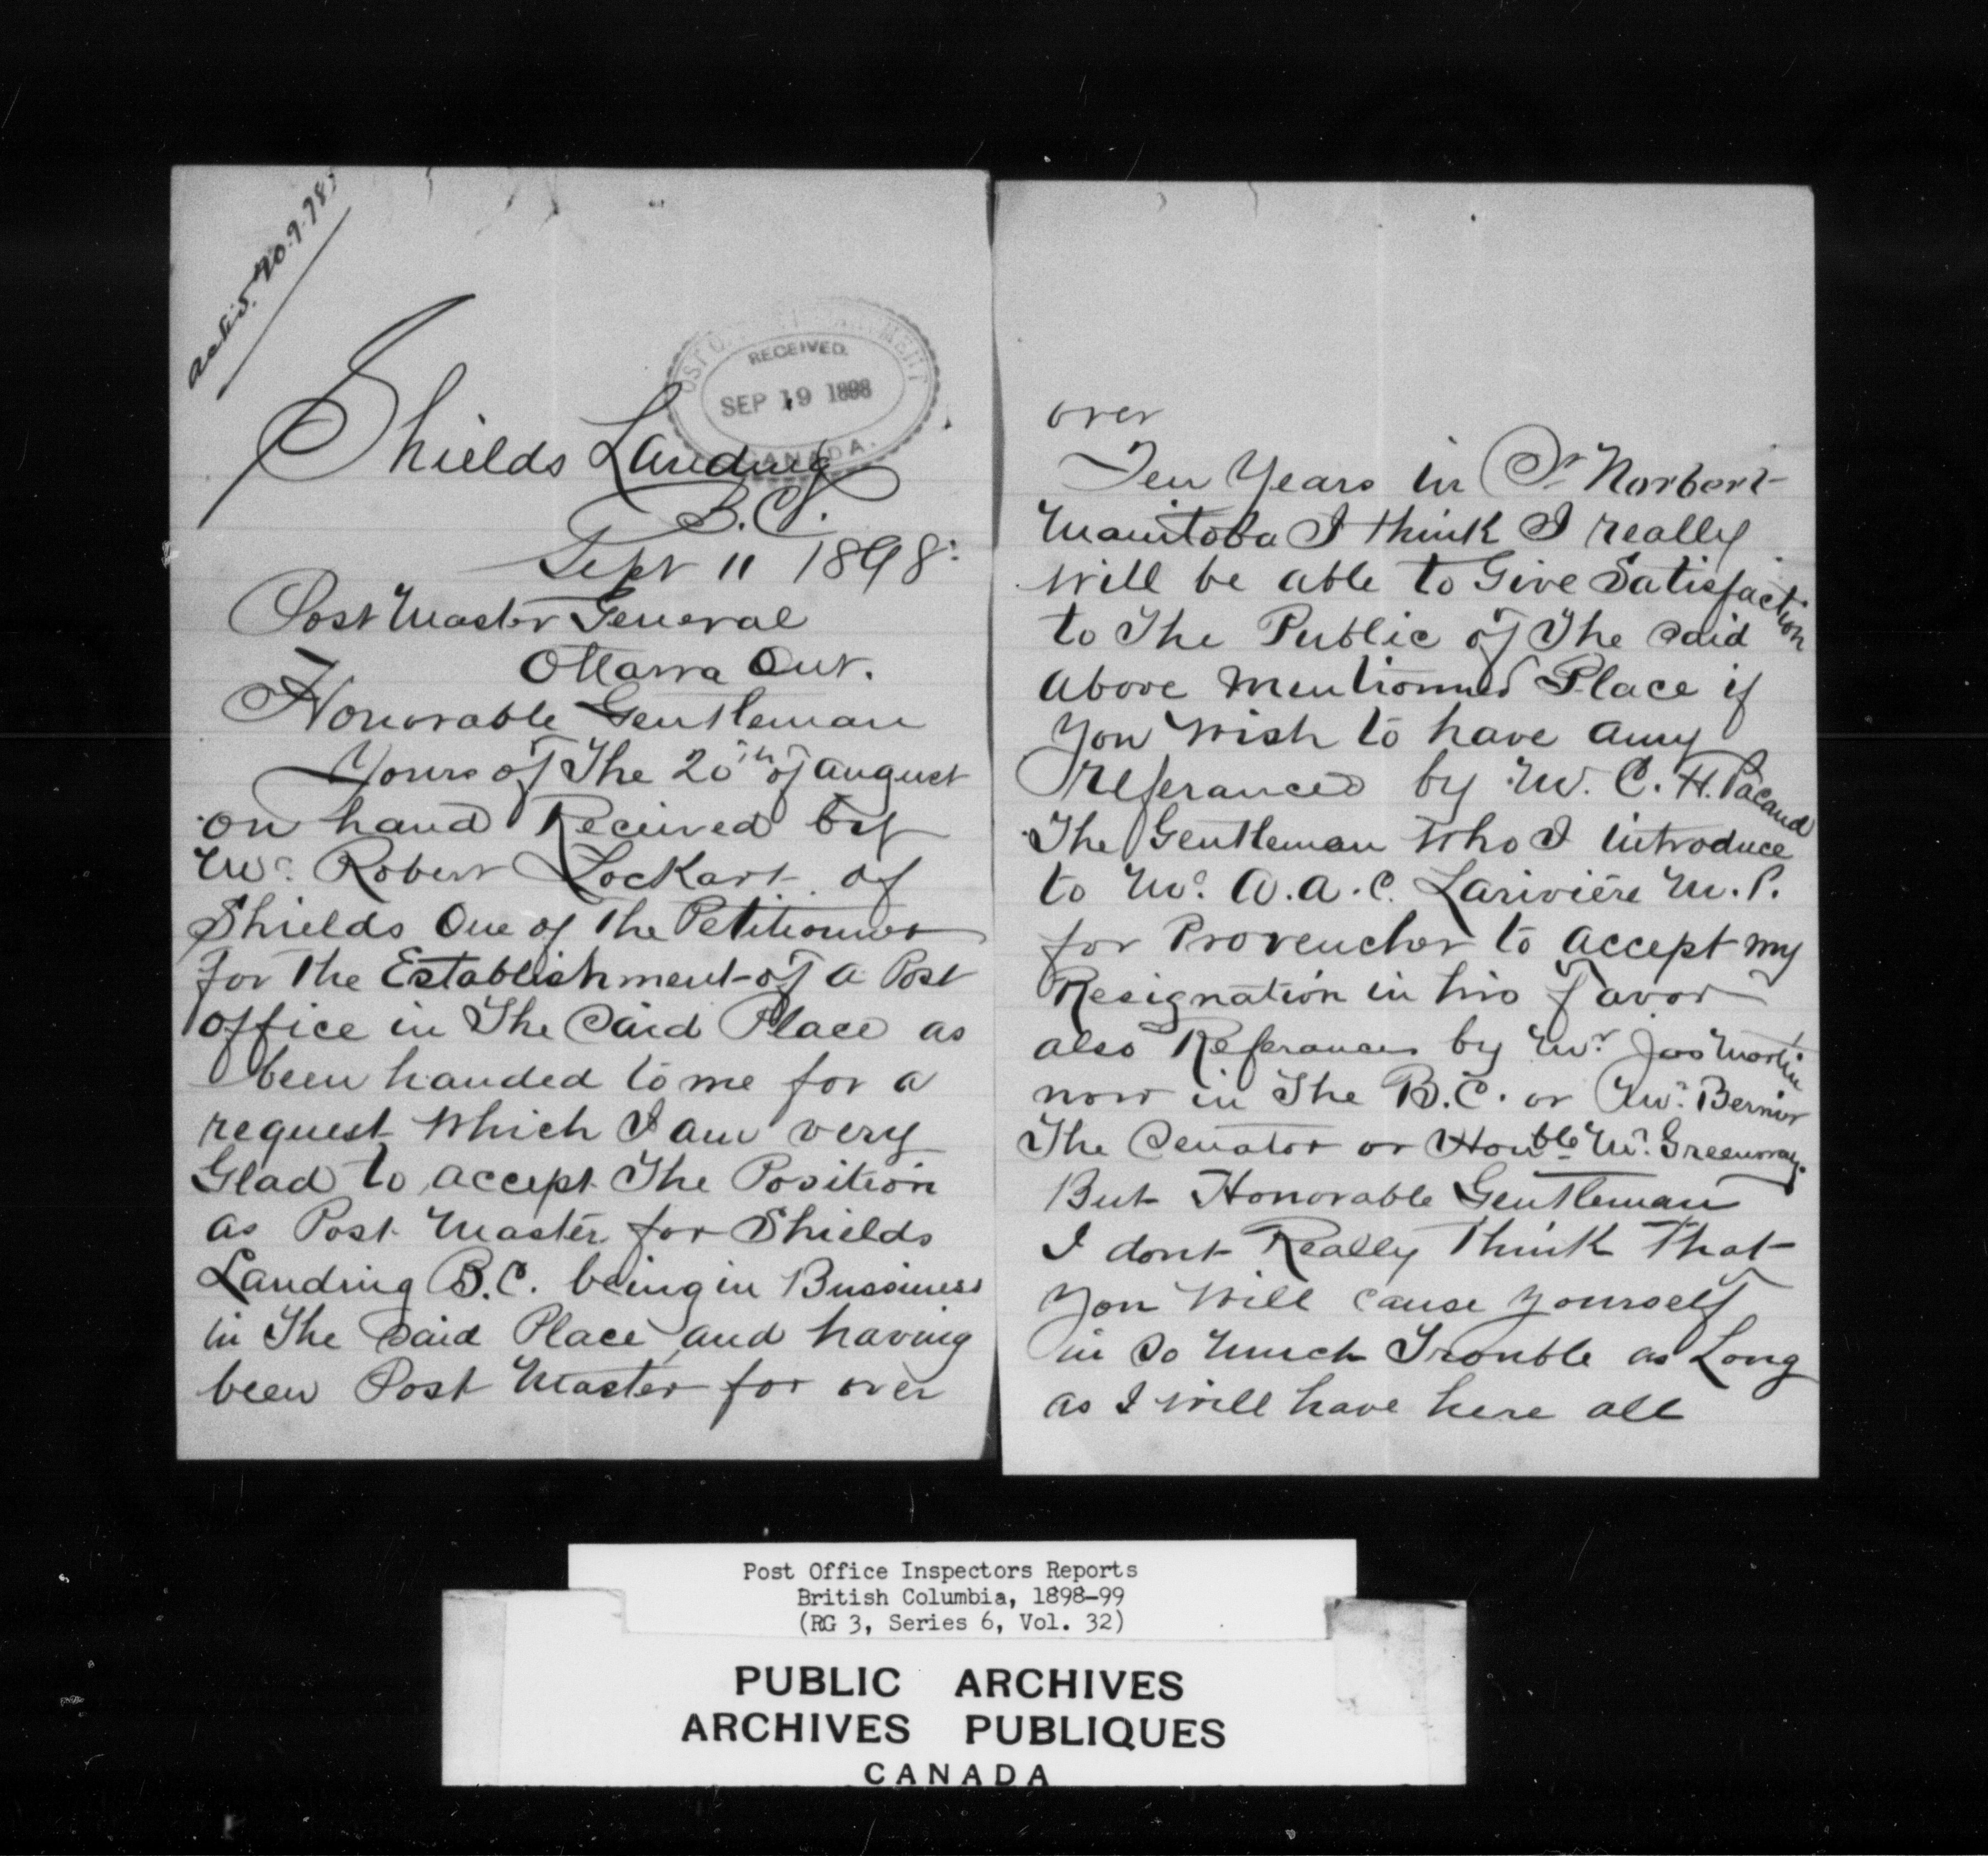 20.9.98
POST OFFICE DEPARTMENT
RECEIVED.
SEP 19 1898
CANADA.
Shields Landing
B.C.
Sept 11 1898.
Post Master General
Ottawa Ont.
Honorable Gentleman
Yours of The 20th of august
on hand Recieved by
Mr. Robert Lockart of
Shields One of The Petitionner
for The Establishment of a Post
office in The Said Place as
been handed to me for a
request which I am very
Glad to accept The Position
as Post Master for Shields
Landing B.C. being in Bussiness
in The Said Place and having
been Post Master for over
over
Ten Years in St Norbert
Manitoba I think I really
will be able to Give Satisfaction
to The Public of The Said
above mentionned Place if
you wish to have anny
Referances by Mr. C. H. Pacaud
The Gentleman Who I introduce
to Mr. A. A. C. Larivière M. P.
for Provencher to accept my
Resignation in his Favor
also Referances by Mr. Jas Martin
now in The B.C. or Mr. Bernier
The Senator or Honble Mr. Greenway.
But Honorable Gentleman
I dont Really Think That
you will cause yourself
in So Much Trouble as Long
as I will have here all
Post Office Inspectors Reports
British Columbia, 1898-99
(RG 3, Series 6, Vol. 32)
PUBLIC ARCHIVES
ARCHIVES PUBLIQUES
CANADA